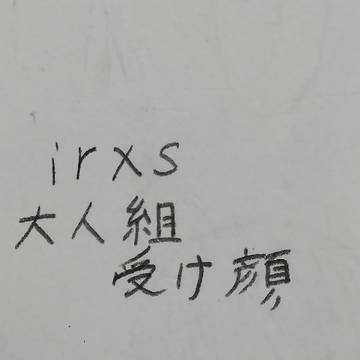 irxs
大人組
受け顔